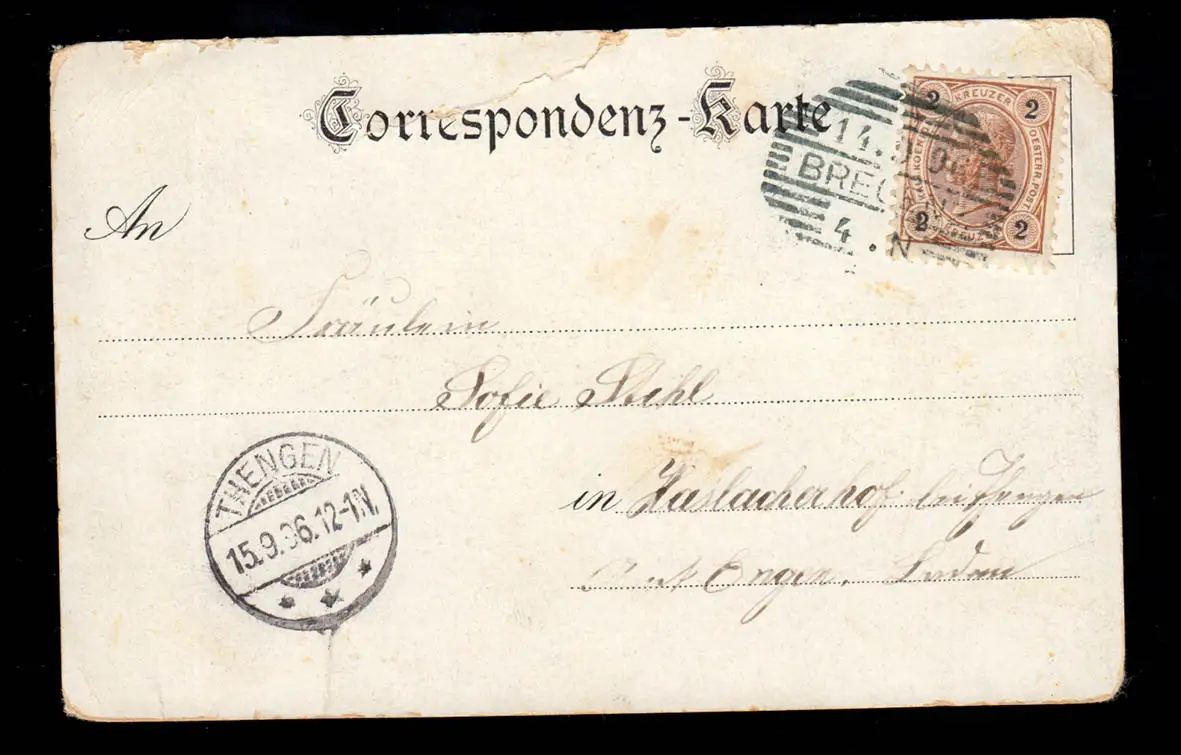 Correspondenz-Karte
2 KREUZER 2
OESTERR. POST
2 2
14. 96
BREG
4. N
An
Fräulein
Sofie Stihl
in Haslacherhof bei Thengen
Amt Engen, Baden
THENGEN
15.9.96.12-1N.